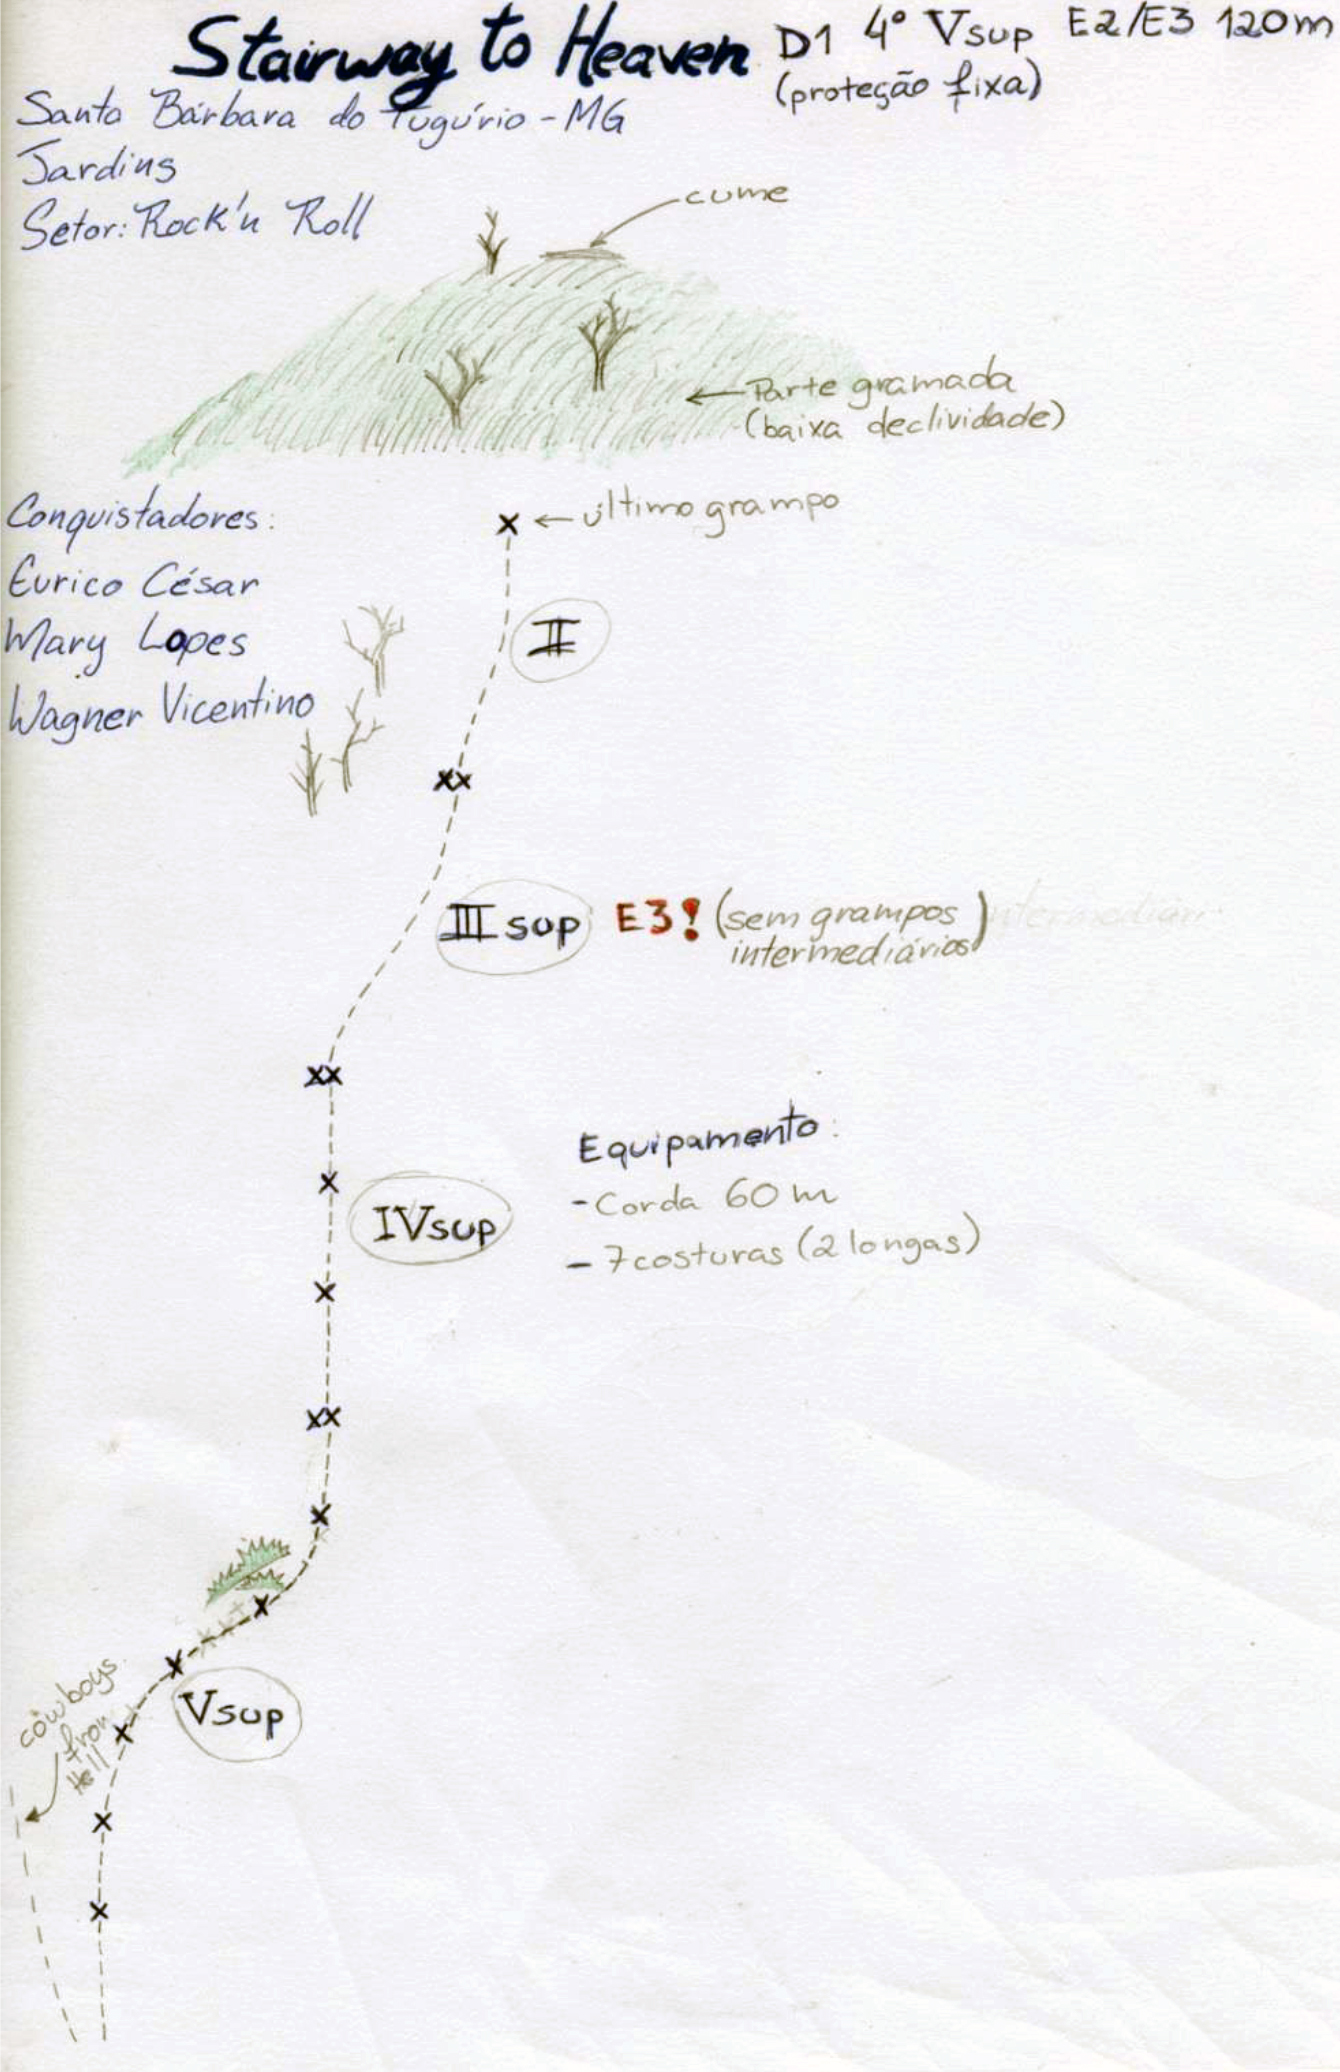 Stairway to Heaven D1 4º Vsup E2/E3 120m
(proteção fixa)
Santa Bárbara do Tugúrio - MG
Jardins
Setor: Rock'n Roll
cume
← Parte gramada
(baixa declividade)
Conquistadores:
Eurico César
Mary Lopes
Wagner Vicentino
x ← último grampo
II
xx
III sup E3! (sem grampos
intermediários)
intermediári
xx
Equipamento:
- Corda 60 m
- 7 costuras (2 longas)
x
IVsup
x
xx
x
x
x
Vsup
cowboys
from
Hell
x
x
x